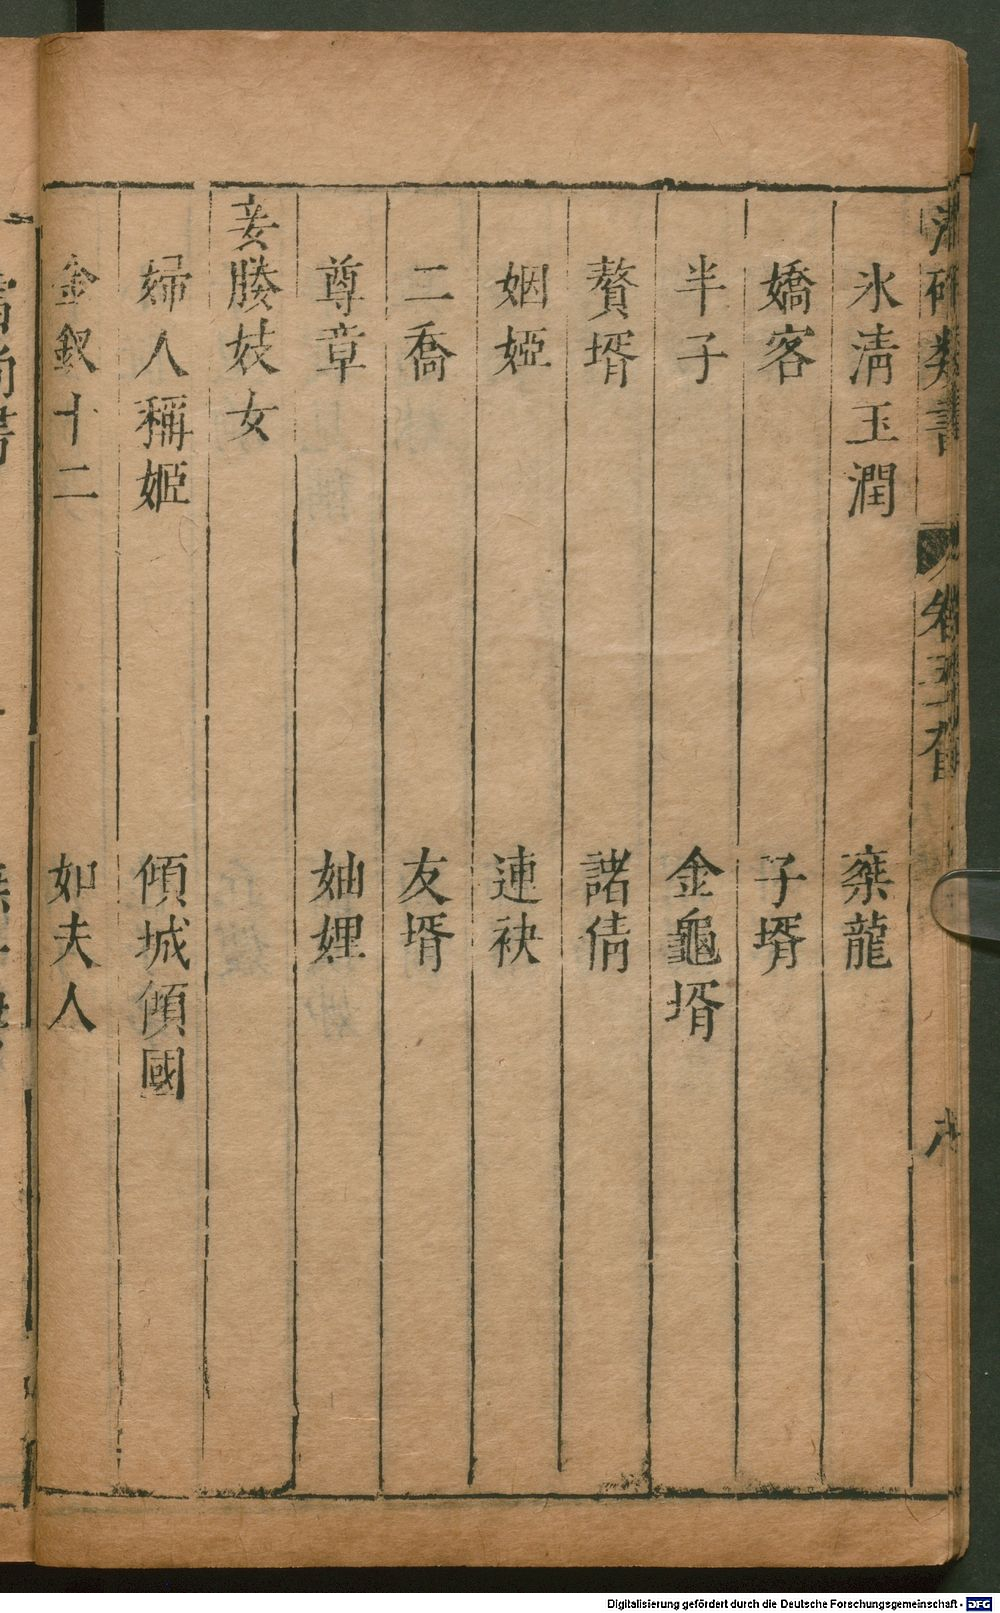 氷清玉潤 乗龍
嬌客 子壻
半子 金龜壻
贅壻 諸倩
姻婭 連袂
二喬 友壻
尊章 妯娌
妾媵妓女
婦人稱姬 傾城傾國
金釵十二 如夫人
Digitalisierung gefördert durch die Deutsche Forschungsgemeinschaft - DFG